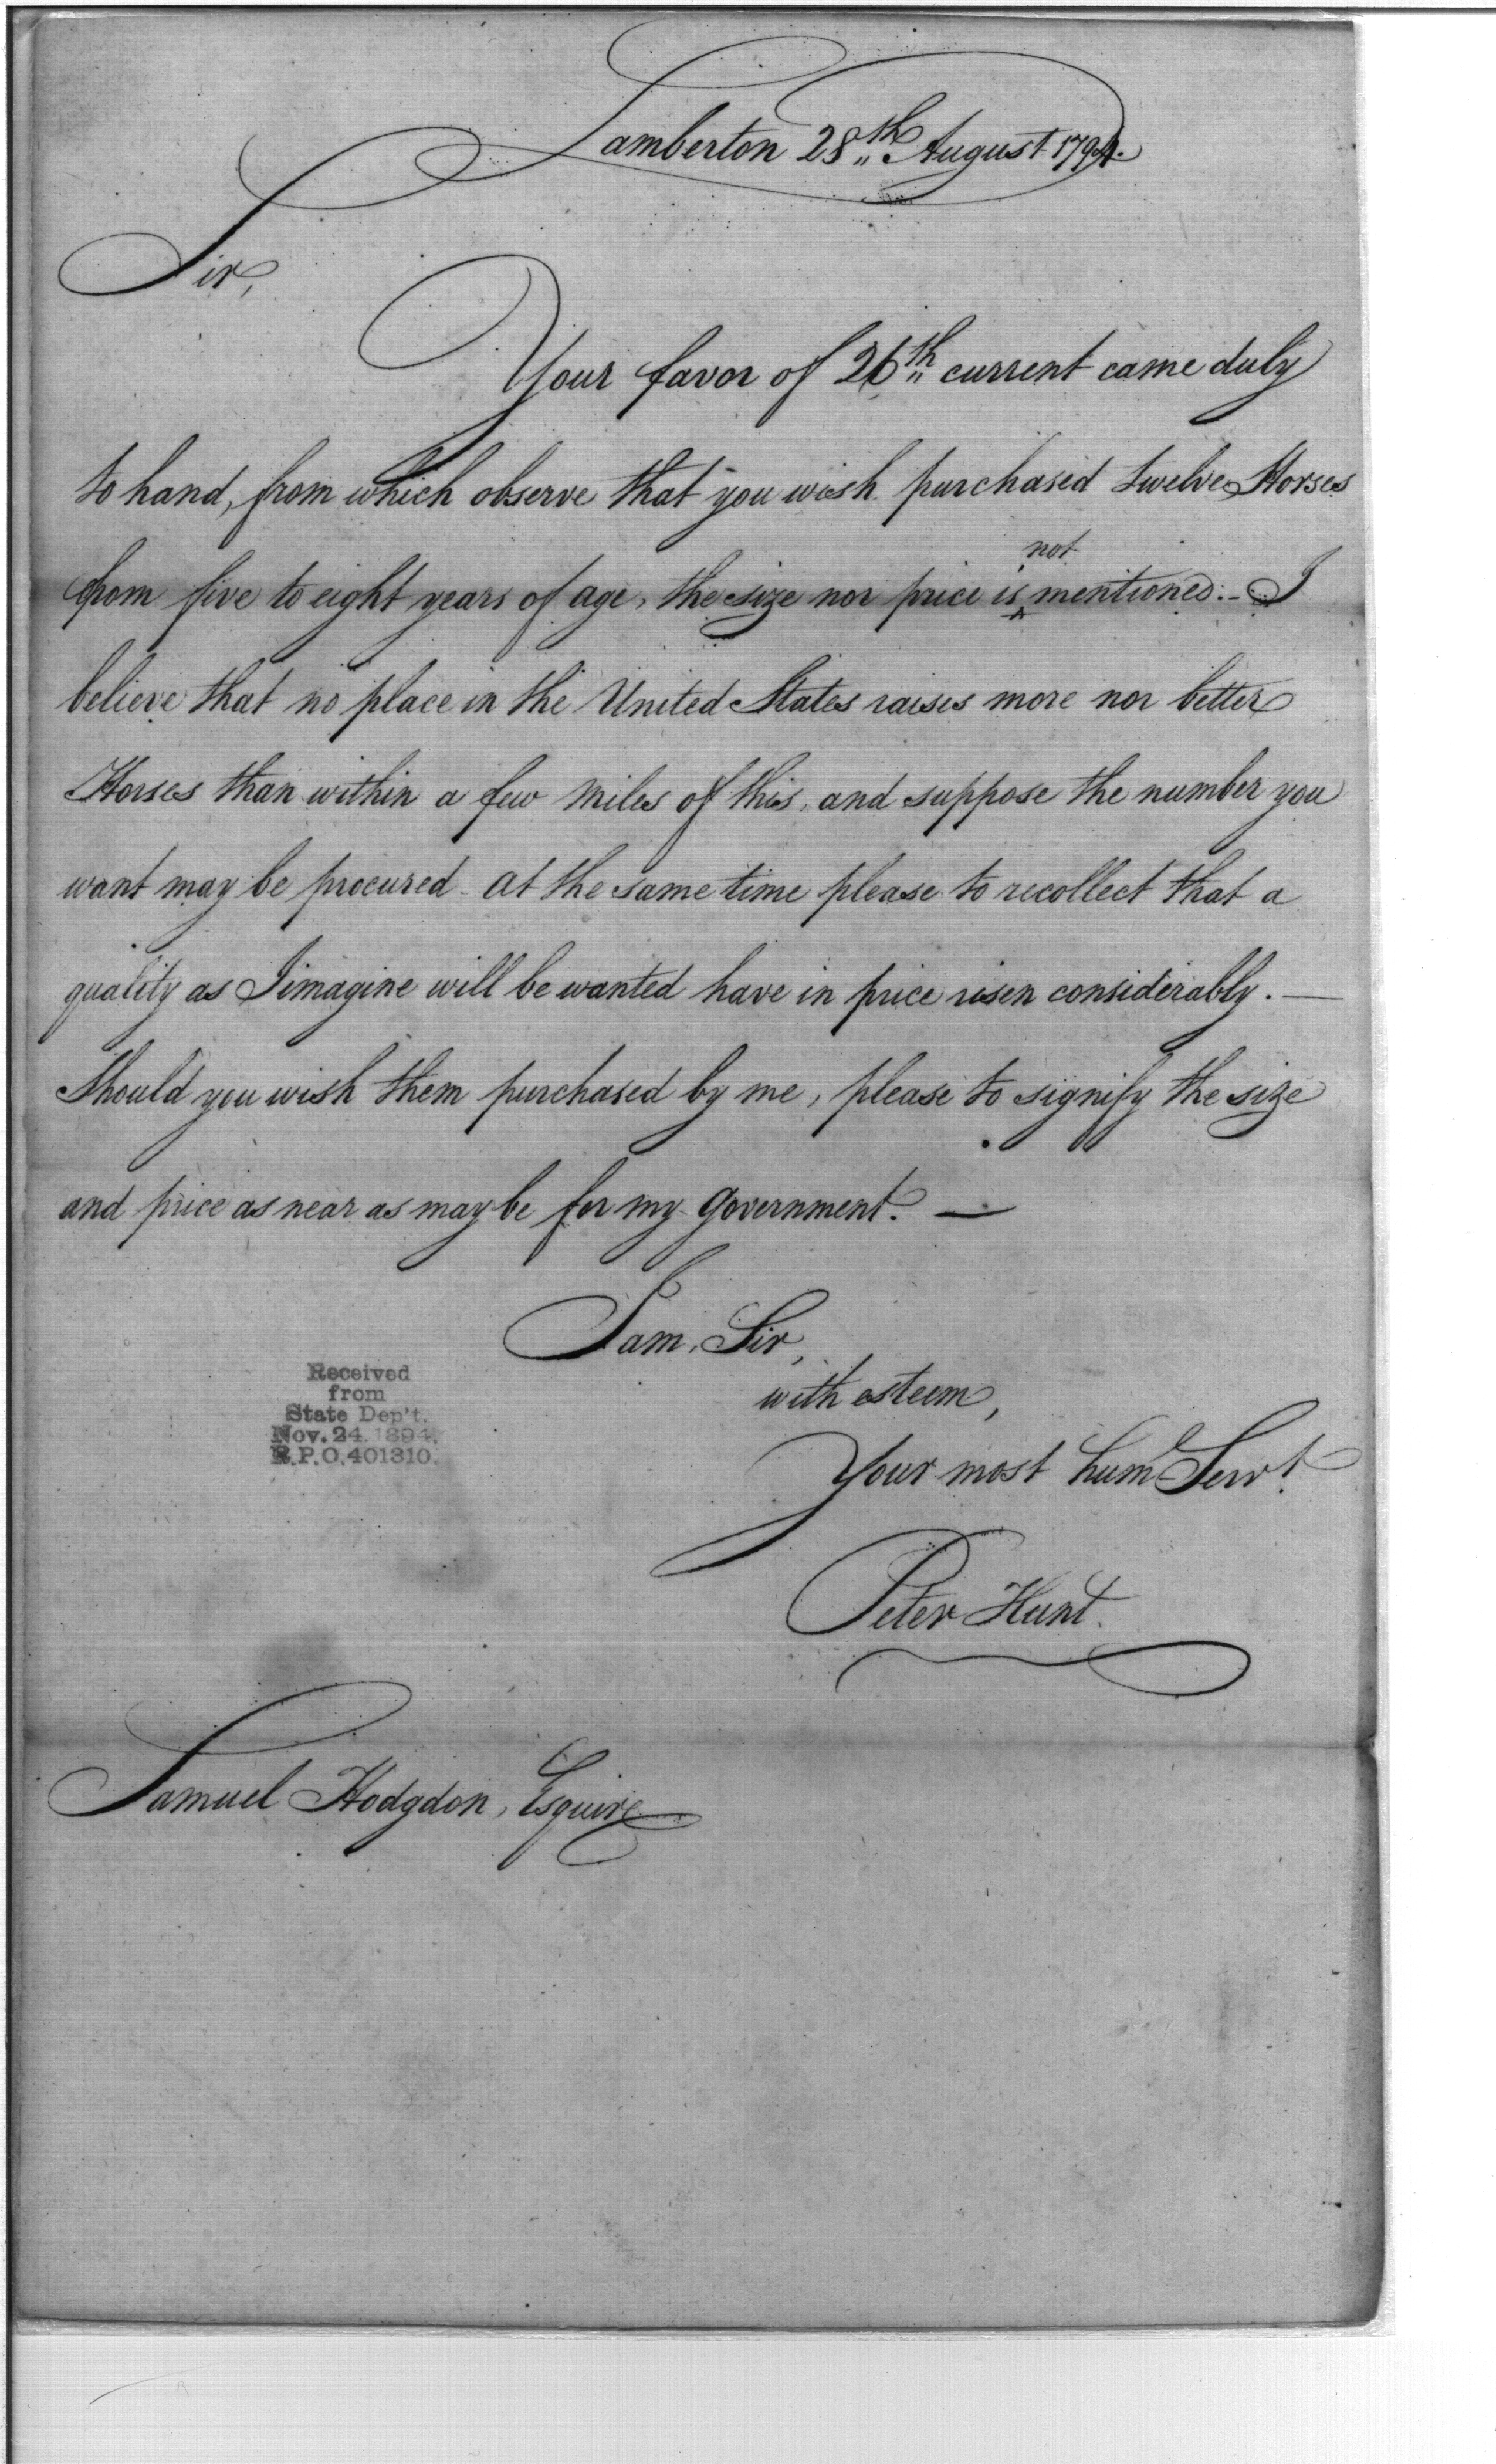 Lamberton 28th August 1794.
Sir,
Your favor of 26th current came duly
to hand, from which observe that you wish purchased twelve Horses
from five to eight years of age, the size nor price is not mentioned. - I
believe that no place in the United States raises more nor better
Horses than within a few miles of this, and suppose the number you
want may be procured at the same time please to recollect that a
quality as I imagine will be wanted have in price risen considerably. —
Should you wish them purchased by me, please to signify the size
and price as near as may be for my government. —
I am, Sir,
with esteem,
Your most hum Servt.
Peter Hunt.
Received
from
State Dep't.
Nov. 24. 1894.
R.P.O. 401310.
Samuel Hodgdon, Esquire